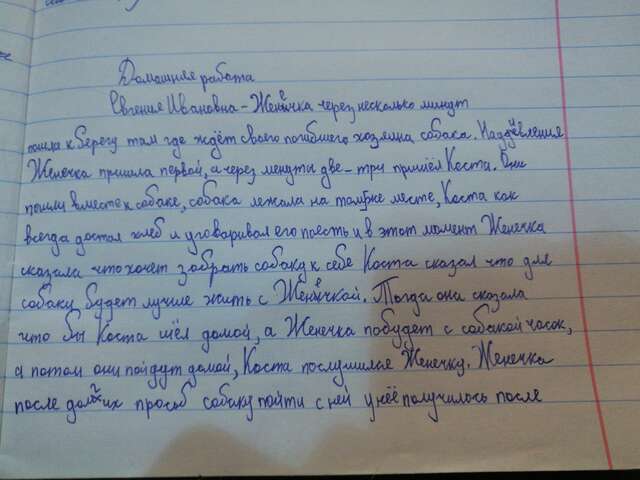 Домашняя работа
Евгения Ивановна-Женечка через несколько минут
пошла к берегу там где ждёт своего погибшего хозяина собака. На удевления
Женечка пришла первой, а через менуты две-три пришёл Коста. Они
пошли вместе к собаке, собака лежала на том же месте, Коста как
всегда достал хлеб и уговаривал его поесть и в этот момент Женечка
сказала что хочет забрать собаку к себе Коста сказал что для
собаки будет лучше жить с Женечкой. Тогда она сказала
что бы Коста шёл домой, а Женечка побудет с собакой часок,
а потом они пойдут домой, Коста послушился Женечку. Женечка
после долгих прозьб собаку пойти с ней у неё получилось после